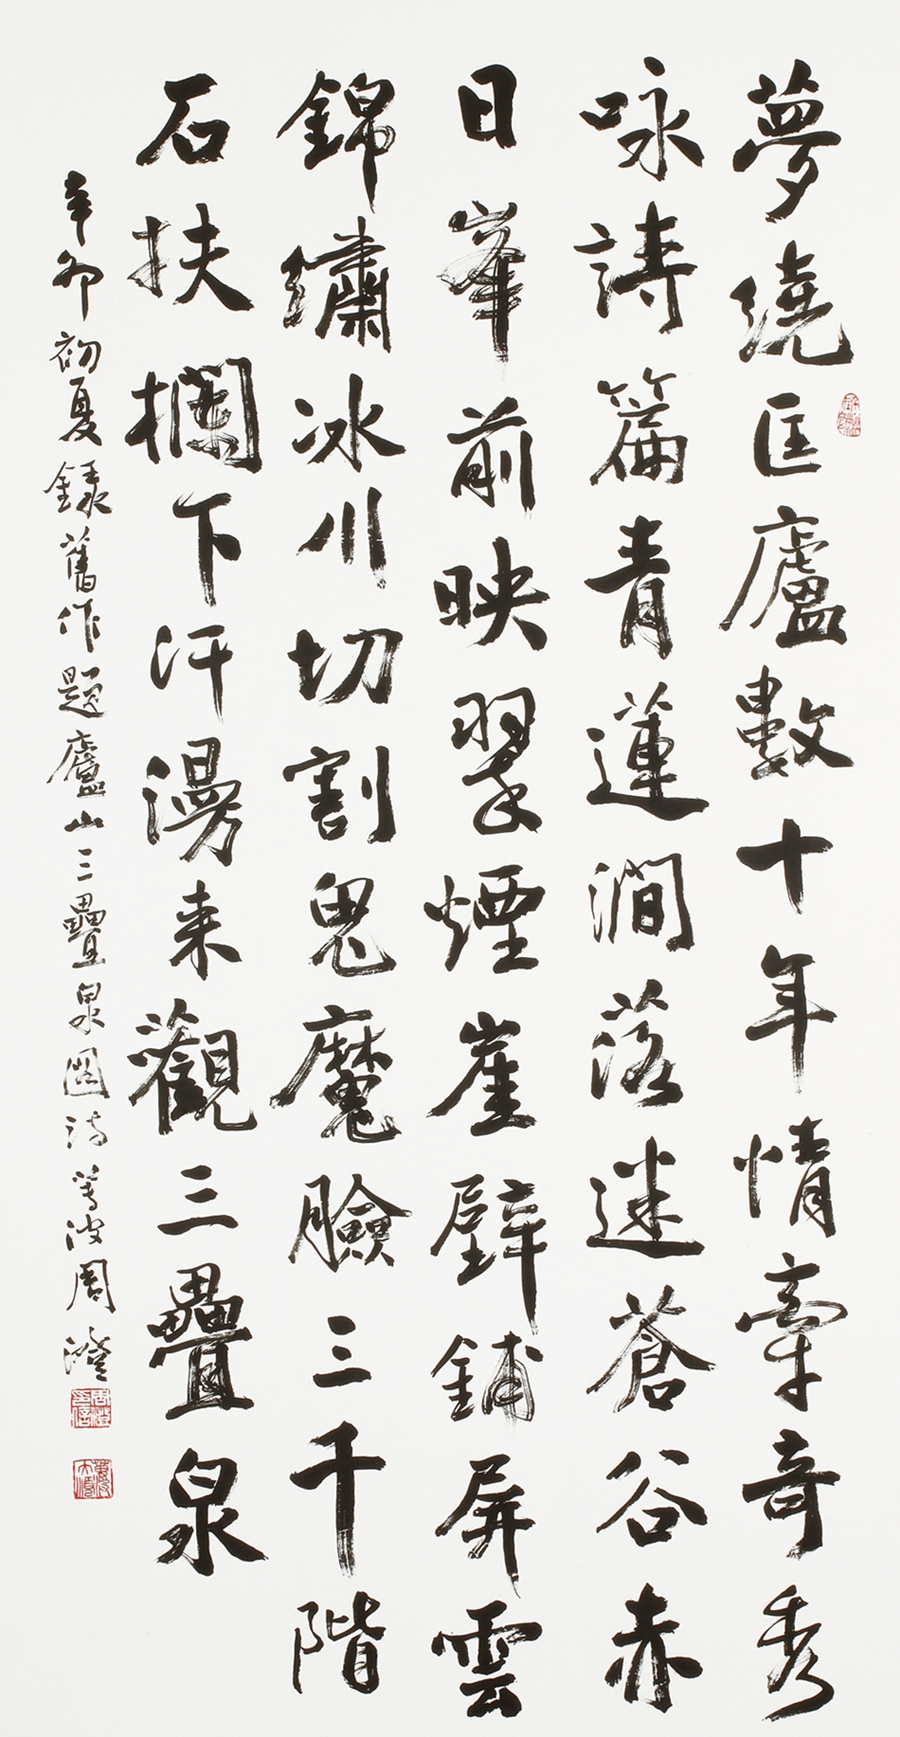 夢繞匡廬數十年情牽奇秀
咏詩篇青蓮澗落迷蒼谷赤
日峯前映翠煙崖壁鋪屏雲
錦繡冰川切割鬼魔臉三千階
石扶欄下汗漫来觀三疊泉
辛卯初夏録舊作題廬山三疊泉圖詩萼波周澄